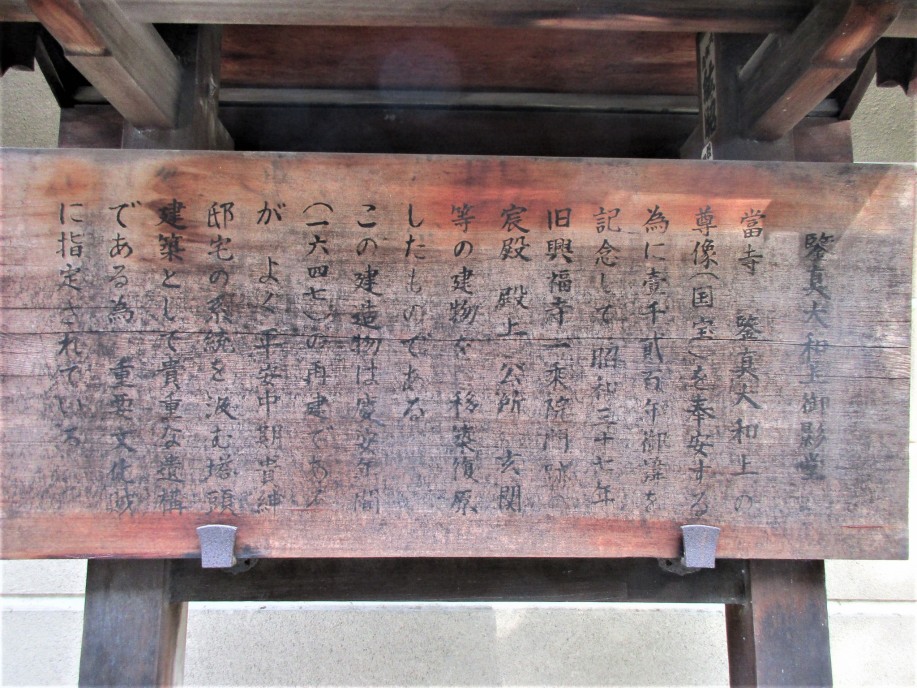 鑒真大和上御影堂
當寺 鑒真大和上の
尊像(国宝)を奉安する
為に壹千貳百年御諱を
記念して 昭和三十七年
旧興福寺一乗院門跡
宸殿 殿上 公所 玄関
等の建物を 移築復原
したものである
この建造物は慶安年間
(一六四七)の再建である
が よく平安中期貴紳
邸宅の系統を汲む搭頭
建築として貴重な遺構
である為 重要文化財
に指定されている